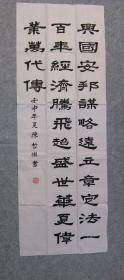 興國安邦謀略遠五章定法一
百年經濟騰飛超盛世華夏偉
業萬代傳
壬申年夏陳哲書